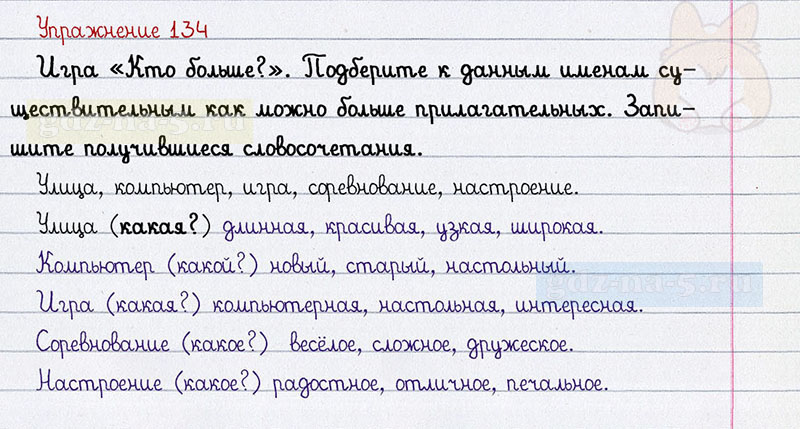 Упражнение 134
Игра «Кто больше?». Подберите к данным именам су-
ществительным как можно больше прилагательных. Запи-
шите получившиеся словосочетания.
Улица, компьютер, игра, соревнование, настроение.
Улица (какая?) длинная, красивая, узкая, широкая.
Компьютер (какой?) новый, старый, настольный.
Игра (какая?) компьютерная, настольная, интересная.
Соревнование (какое?) весёлое, сложное, дружеское.
Настроение (какое?) радостное, отличное, печальное.
gdz-na-5.ru
gdz-na-5.ru